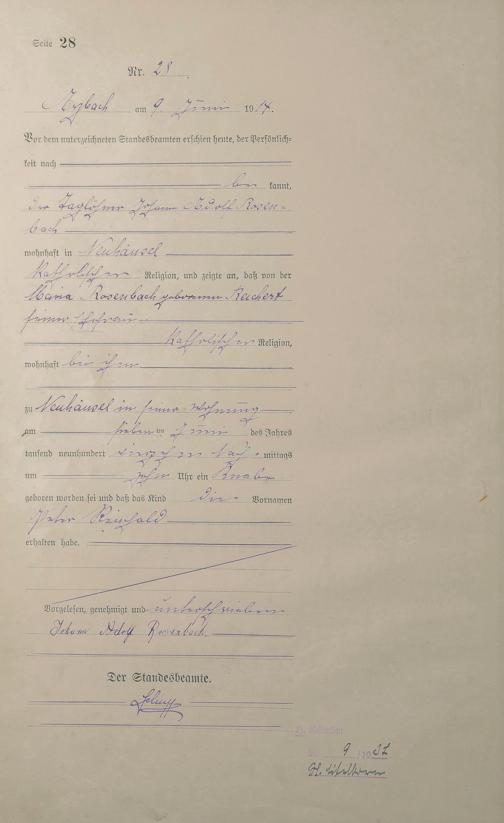 Seite 28
Nr. 28.
am 9. Juni 1914.
Vor dem unterzeichneten Standesbeamten erschien heute, der Persönlich-
keit nach
be kannt,
der Taglöhner Johann Adolf Rosen-
bach
wohnhaft in Neuhäusel
katholischer Religion, und zeigte an, daß von der
Maria Rosenbach geborenen Reichert
seiner Ehefrau
katholischer Religion,
wohnhaft bei ihm
zu Neuhäusel in seiner Wohnung
am sieben ten Juni des Jahres
tausend neunhundert vierzehn mittags
um zehn Uhr ein Knabe
geboren worden sei und daß das Kind die Vornamen
Peter
erhalten habe.
Vorgelesen, genehmigt und unterschrieben
Johann Adolf Rosenbach
Der Standesbeamte.